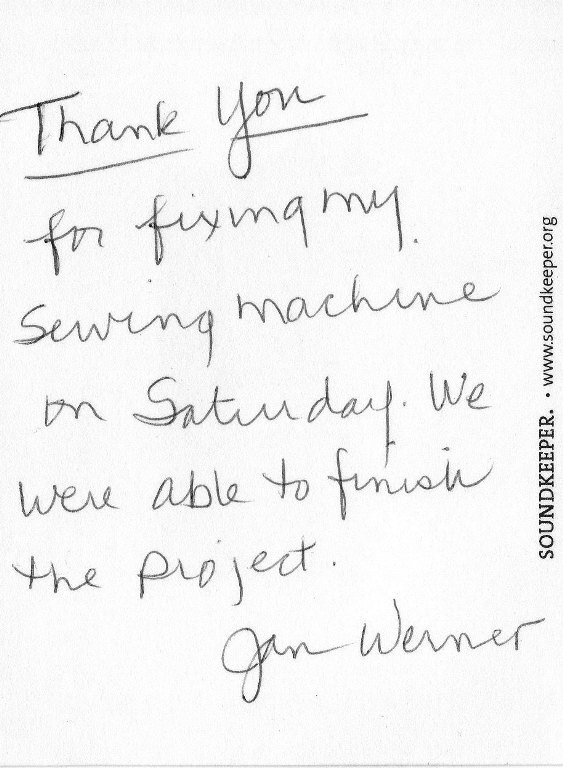 Thank You
for fixing my
Sewing machine
on Saturday. We
were able to finish
the project.
Jan Werner
SOUNDKEEPER. • www.soundkeeper.org